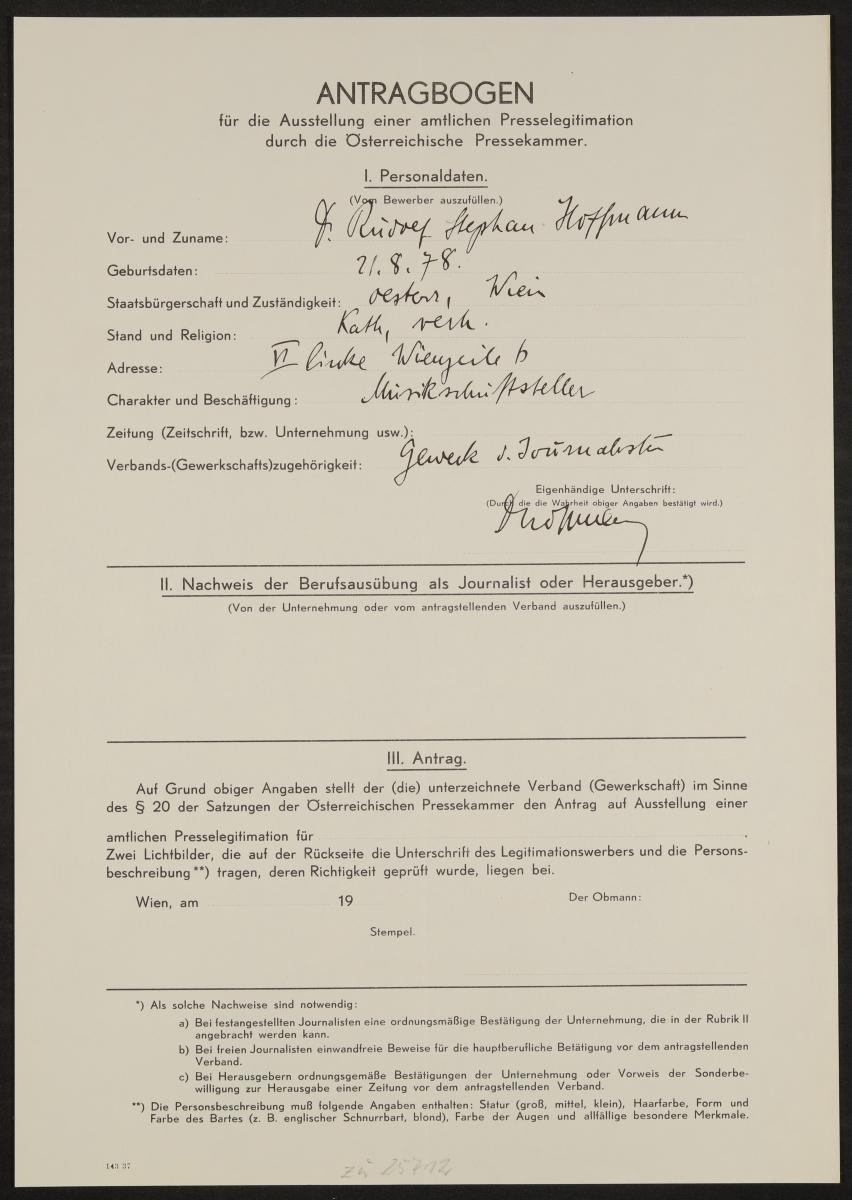 ANTRAGBOGEN
für die Ausstellung einer amtlichen Presselegitimation
durch die Österreichische Pressekammer.
I. Personaldaten.
(Vom Bewerber auszufüllen.)
Vor- und Zuname: Dr. Rudolf Stephan Hoffmann
Geburtsdaten: 21. 8. 78.
Staatsbürgerschaft und Zuständigkeit: oesterr, Wien
Stand und Religion: Kath, verh.
Adresse: VI linke Wienzeile
Charakter und Beschäftigung: Musikschriftsteller
Zeitung (Zeitschrift, bzw. Unternehmung usw.):
Verbands-(Gewerkschafts)zugehörigkeit: Gewerk d. Journalisten
Eigenhändige Unterschrift:
(Durch die die Wahrheit obiger Angaben bestätigt wird.)
II. Nachweis der Berufsausübung als Journalist oder Herausgeber.*)
(Von der Unternehmung oder vom antragstellenden Verband auszufüllen.)
III. Antrag.
Auf Grund obiger Angaben stellt der (die) unterzeichnete Verband (Gewerkschaft) im Sinne
des § 20 der Satzungen der Österreichischen Pressekammer den Antrag auf Ausstellung einer
amtlichen Presselegitimation für .
Zwei Lichtbilder, die auf der Rückseite die Unterschrift des Legitimationswerbers und die Persons-
beschreibung **) tragen, deren Richtigkeit geprüft wurde, liegen bei.
Wien, am 19 Der Obmann:
Stempel.
*) Als solche Nachweise sind notwendig:
a) Bei festangestellten Journalisten eine ordnungsmäßige Bestätigung der Unternehmung, die in der Rubrik II
angebracht werden kann.
b) Bei freien Journalisten einwandfreie Beweise für die hauptberufliche Betätigung vor dem antragstellenden
Verband.
c) Bei Herausgebern ordnungsgemäße Bestätigungen der Unternehmung oder Vorweis der Sonderbe-
willigung zur Herausgabe einer Zeitung vor dem antragstellenden Verband.
**) Die Personsbeschreibung muß folgende Angaben enthalten: Statur (groß, mittel, klein), Haarfarbe, Form und
Farbe des Bartes (z. B. englischer Schnurrbart, blond), Farbe der Augen und allfällige besondere Merkmale.
143 37
zu 25712